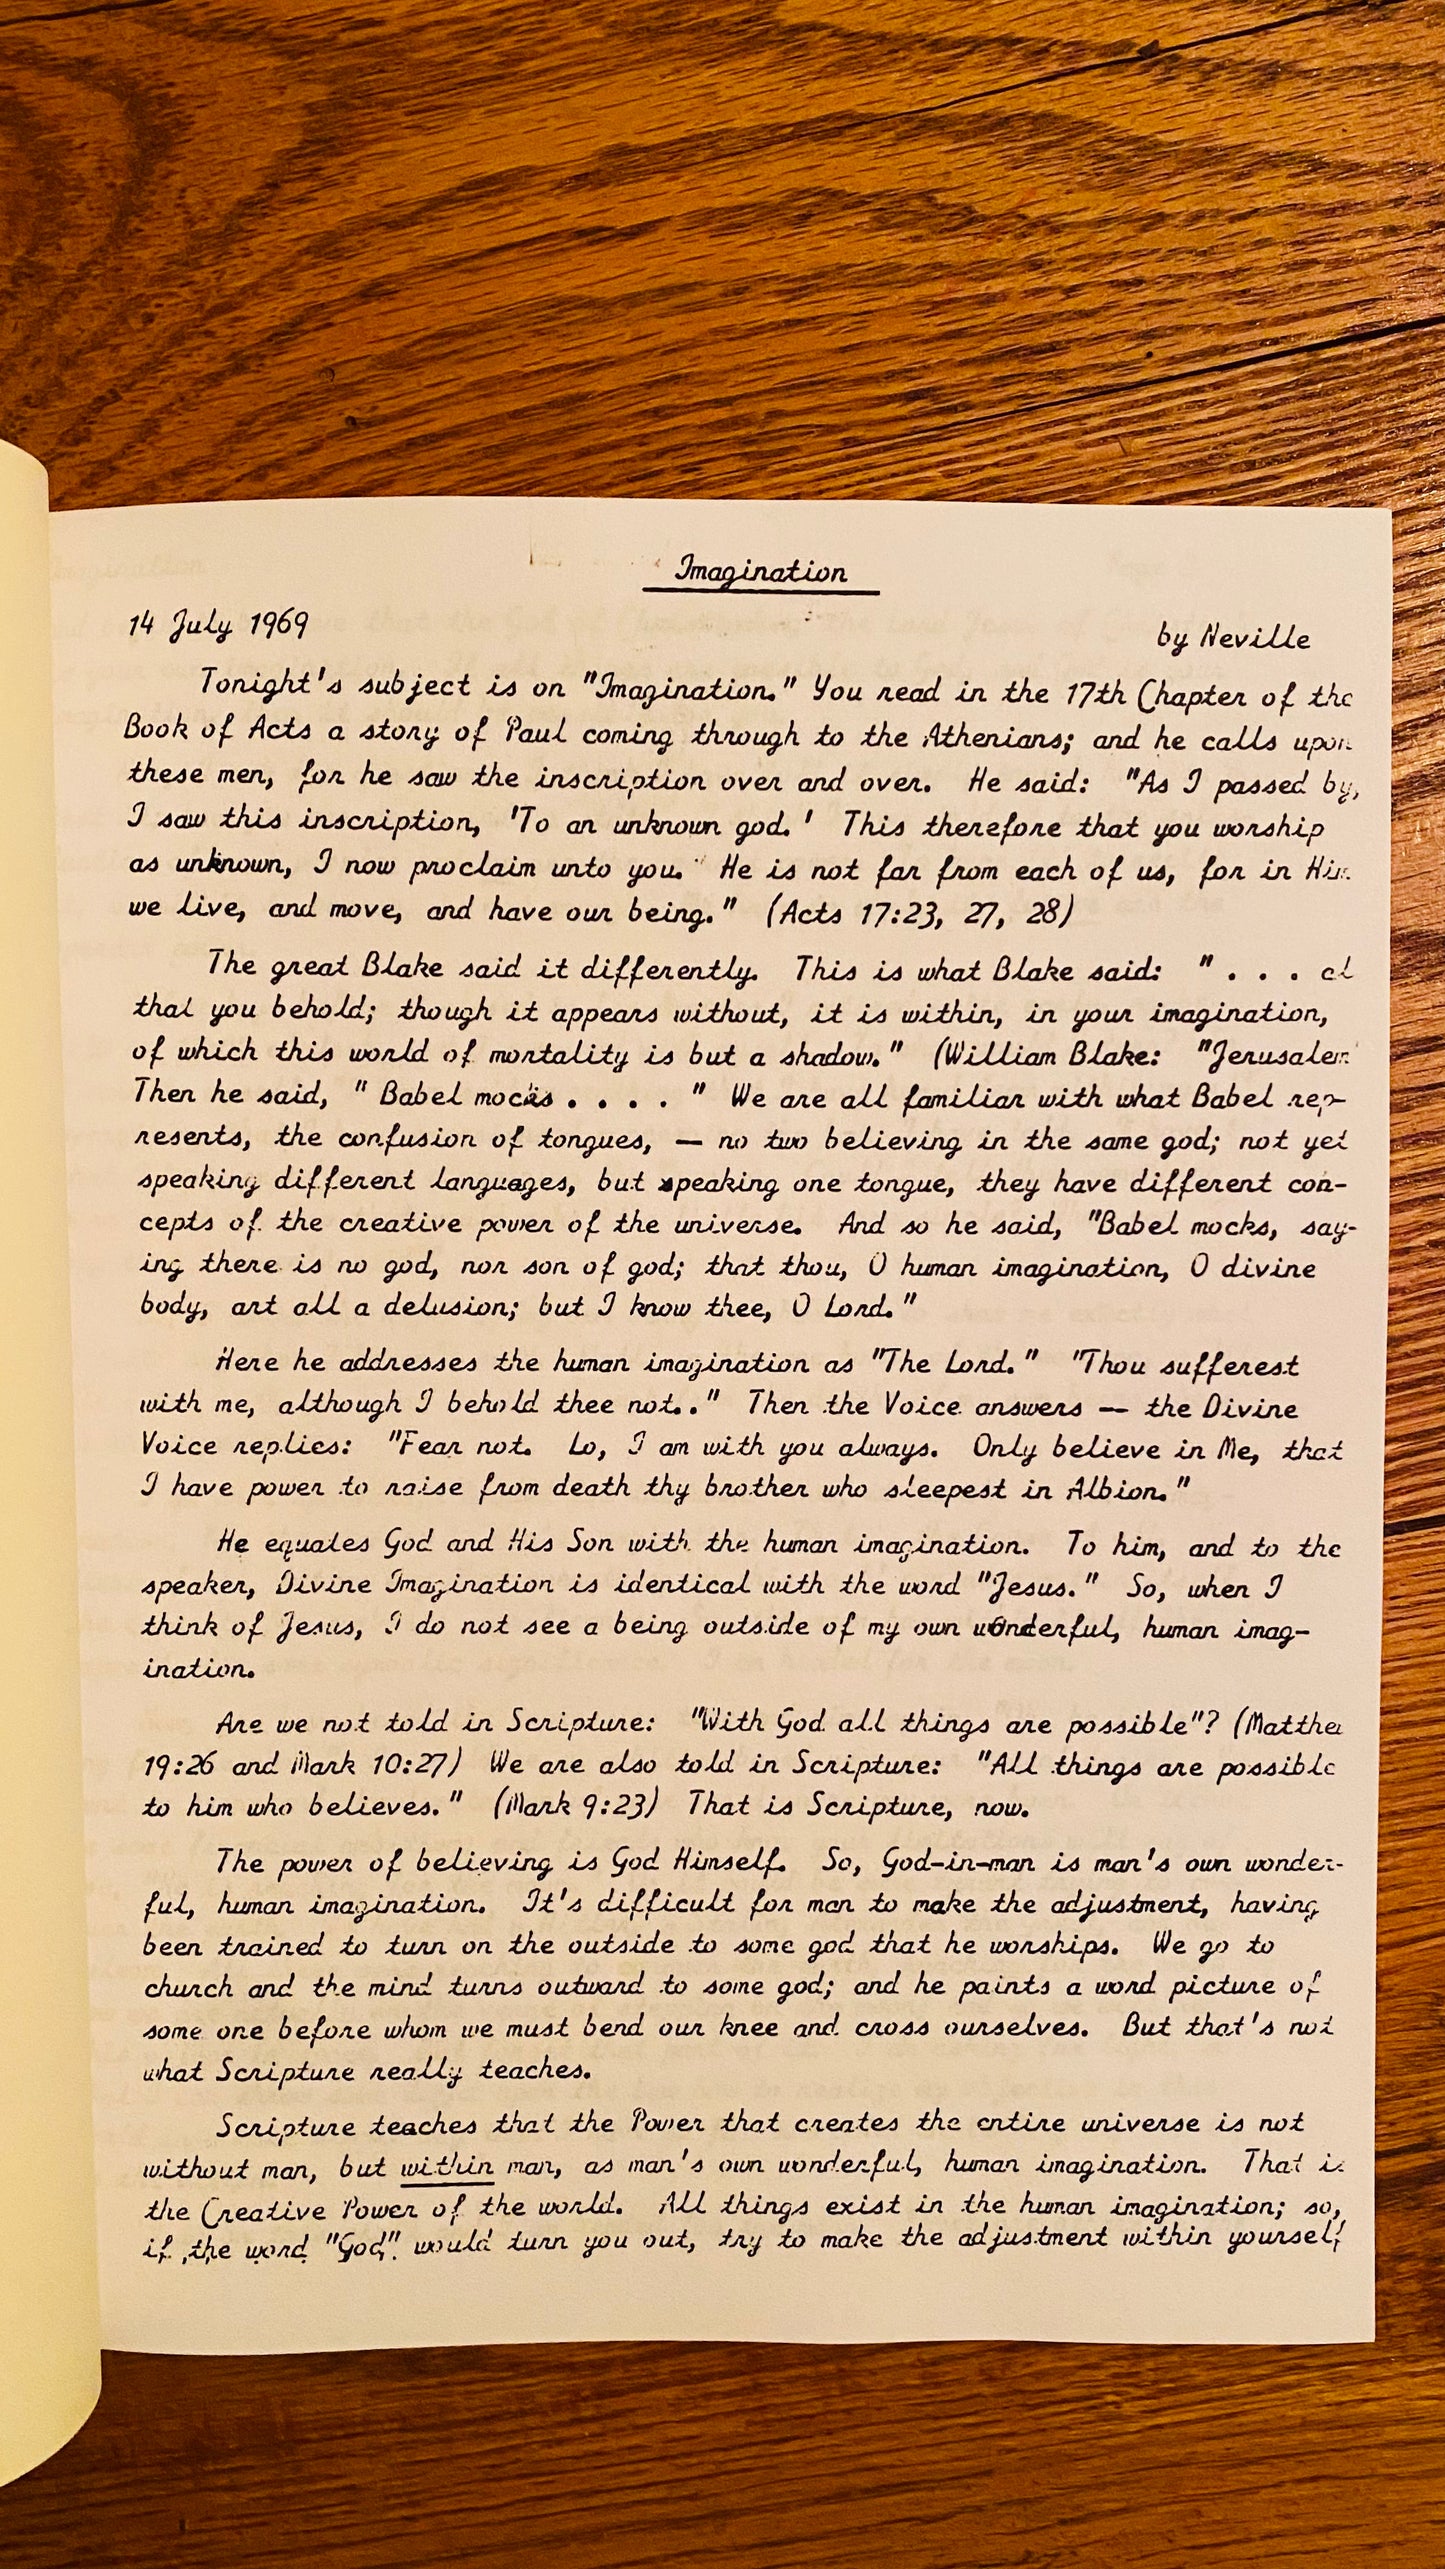 Imagination
14 July 1969
by Neville
Tonight's subject is on "Imagination." You read in the 17th Chapter of the
Book of Acts a story of Paul coming through to the Athenians; and he calls upon
these men, for he saw the inscription over and over. He said: "As I passed by,
I saw this inscription, 'To an unknown god.' This therefore that you worship
as unknown, I now proclaim unto you." He is not far from each of us, for in Him
we live, and move, and have our being." (Acts 17:23, 27, 28)
The great Blake said it differently. This is what Blake said: " . . . al
that you behold; though it appears without, it is within, in your imagination,
of which this world of mortality is but a shadow." (William Blake: "Jerusalem
Then he said, " Babel mocks . . . . " We are all familiar with what Babel rep-
resents, the confusion of tongues, — no two believing in the same god; not yet
speaking different languages, but speaking one tongue, they have different con-
cepts of the creative power of the universe. And so he said, "Babel mocks, say-
ing there is no god, nor son of god; that thou, O human imagination, O divine
body, art all a delusion; but I know thee, O Lord."
Here he addresses the human imagination as "The Lord." "Thou sufferest
with me, although I behold thee not.." Then the Voice answers — the Divine
Voice replies: "Fear not. Lo, I am with you always. Only believe in Me, that
I have power to raise from death thy brother who sleepest in Albion."
He equates God and His Son with the human imagination. To him, and to the
speaker, Divine Imagination is identical with the word "Jesus." So, when I
think of Jesus, I do not see a being outside of my own wonderful, human imag-
ination.
Are we not told in Scripture: "With God all things are possible"? (Matthe
19:26 and Mark 10:27) We are also told in Scripture: "All things are possible
to him who believes." (Mark 9:23) That is Scripture, now.
The power of believing is God Himself. So, God-in-man is man's own wonder-
ful, human imagination. It's difficult for man to make the adjustment, having
been trained to turn on the outside to some god that he worships. We go to
church and the mind turns outward to some god; and he paints a word picture of
some one before whom we must bend our knee and cross ourselves. But that's not
what Scripture really teaches.
Scripture teaches that the Power that creates the entire universe is not
without man, but within man, as man's own wonderful, human imagination. That is
the Creative Power of the world. All things exist in the human imagination; so,
if the word "God" would turn you out, try to make the adjustment within yourself